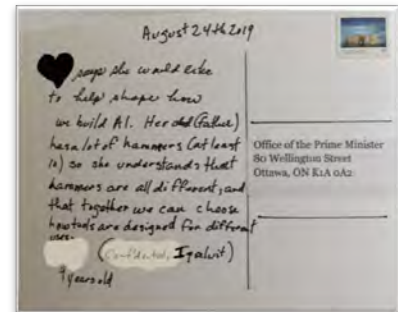 August 24th 2019
says she would like
to help shape how
we build AI. Her dad (Father)
has a lot of hammers (at least
10) so she understands that
hammers are all different, and
that together we can choose
how tools are designed for different
uses.
(Confidential, Iqaluit)
9 years old
Office of the Prime Minister
80 Wellington Street
Ottawa, ON K1A 0A2